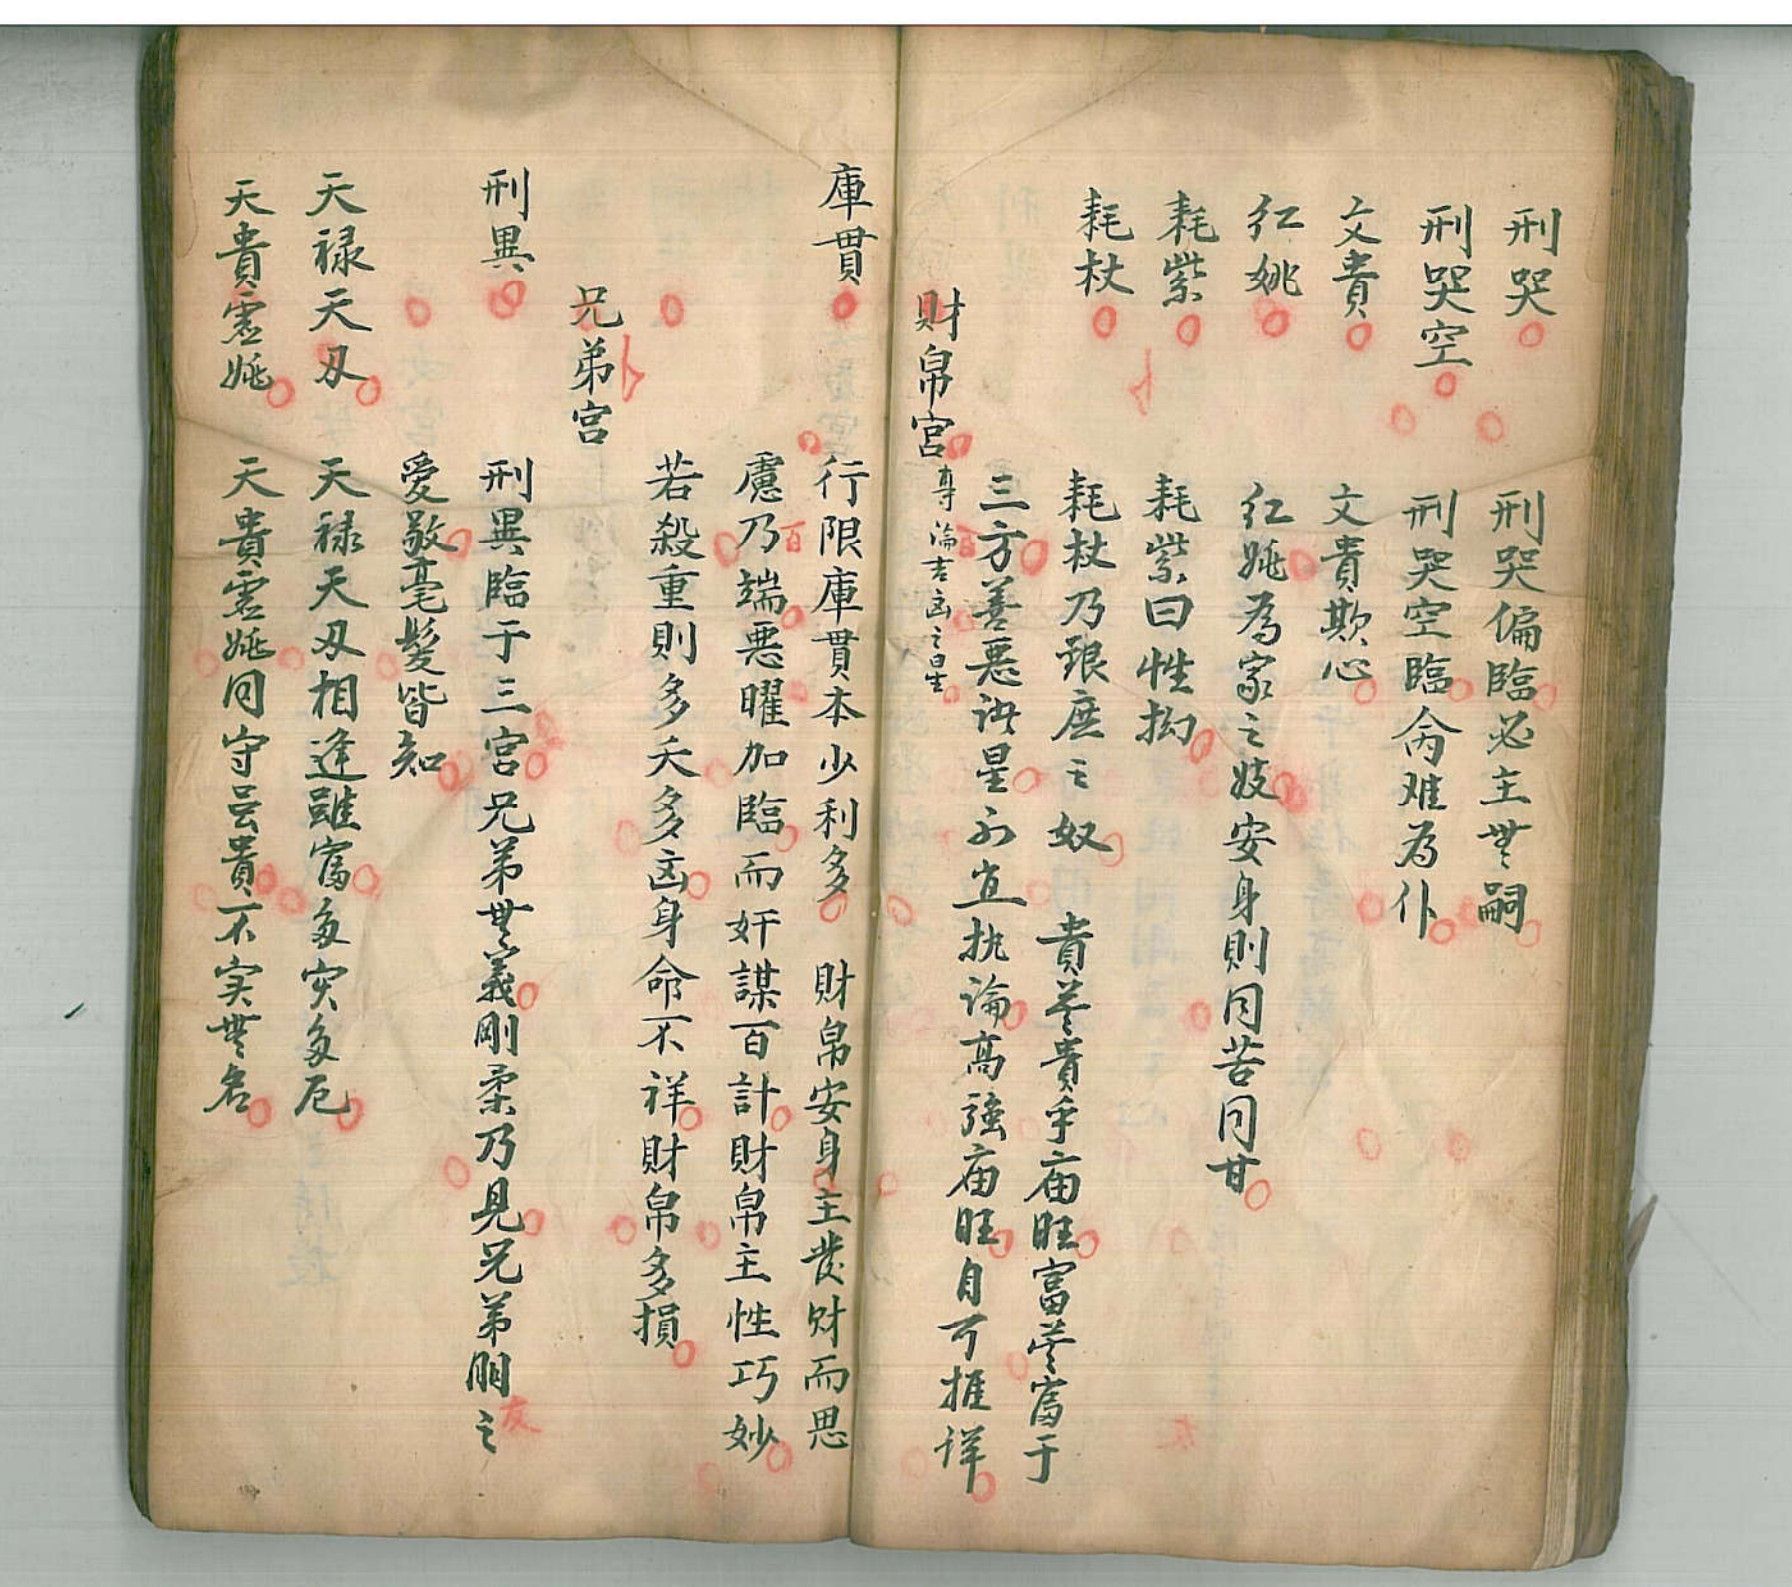 刑哭 刑哭偏臨必主無嗣
刑哭空 刑哭空臨禽难為仆
文貴 文貴欺心
红姚 红姚為家之妓安身則同苦同甘
耗紫 耗紫曰性拗
耗杖 耗杖乃跟庶之奴 貴苍貴乎庙旺富苍富于
三方善惡諸星不宜执論高強庙旺自可推详
財帛宮 專論吉凶之曰生
庫貫 行限庫貫本少利多 財帛安身主發财而思
慮乃端惡曜加臨而奸謀百計財帛主性巧妙
百
若殺重則多夭多凶身命不祥財帛多損
兄弟宮
刑異 刑異臨于三宮兄弟無義剛柔乃見兄弟朋之
友
愛敬毫髮皆知
天禄天刃 天禄天刃相逢雖富多灾多厄
天貴虛姚 天貴虛姚同守虽貴不实無名